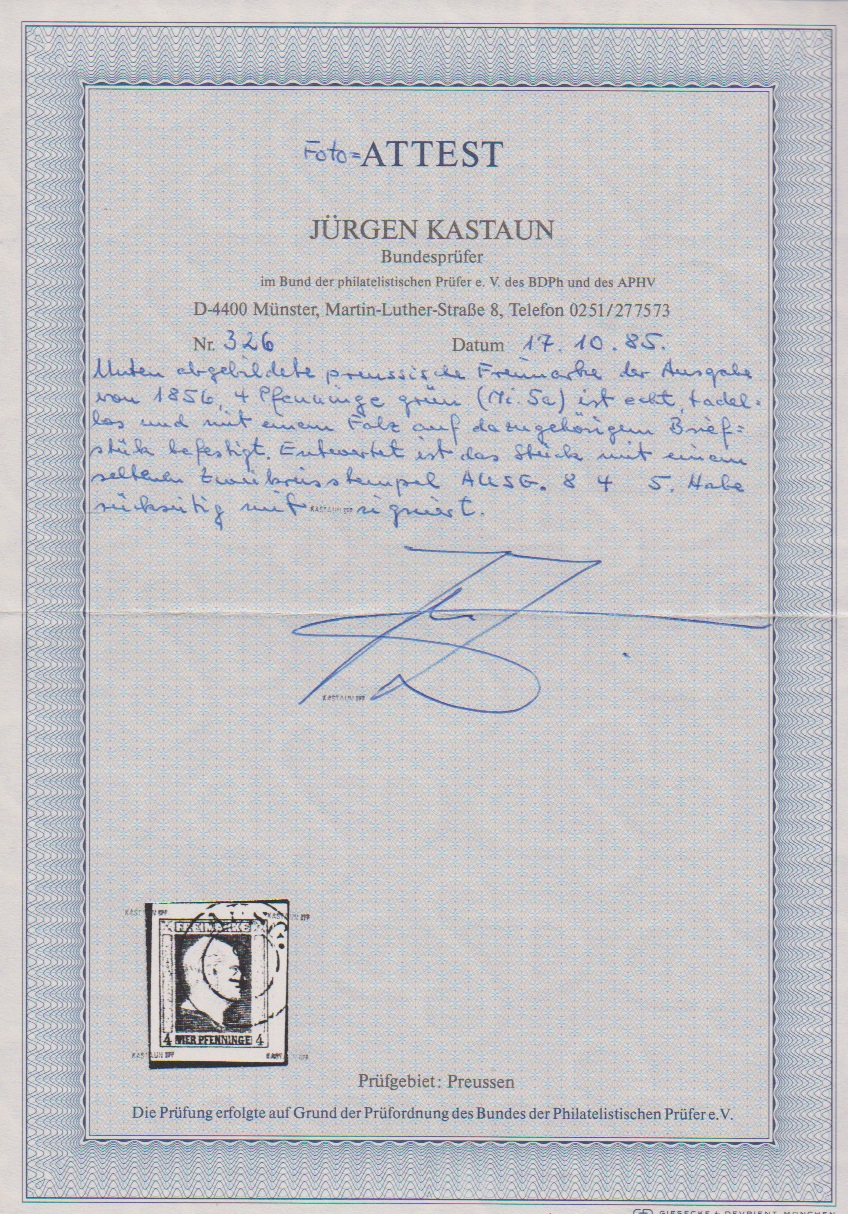 Foto=ATTEST
JÜRGEN KASTAUN
Bundesprüfer
im Bund der philatelistischen Prüfer e. V. des BDPh und des APHV
D-4400 Münster, Martin-Luther-Straße 8, Telefon 0251/277573
Nr. 326 Datum 17. 10. 85.
Unten abgebildete preussische Freimarke der Ausgabe
von 1856, 4 Pfenninge grün (Mi. 5a) ist echt, tadel=
los und mit einem Falz auf dazugehörigem Brief=
stük befestigt. Entwertet ist das Stück mit einem
seltenen Zweikreisstempel AUSG. 8 4 5. Habe
rückseitig mit KASTAUN BPP signiert.
KASTAUN BPP
KASTAUN BPP KASTAUN BPP
AUSG.
FREIMARKE
4 VIER PFENNINGE 4
KASTAUN BPP KASTAUN BPP
Prüfgebiet: Preussen
Die Prüfung erfolgte auf Grund der Prüfordnung des Bundes der Philatelistischen Prüfer e.V.
GIESECKE + DEVRIENT MÜNCHEN